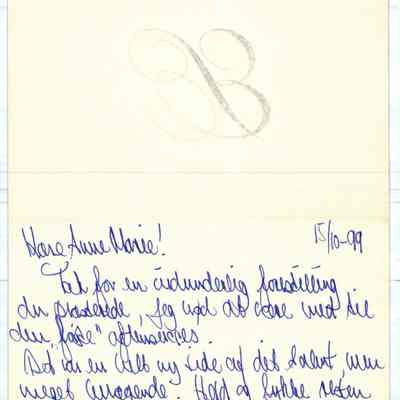 B
Kære Anne Marie!
15/10-99
Tak for en vidunderlig forestilling.
du, jeg nød at være med til
den "første" aftenservice.
Det var en helt ny side af dit talent, men
meget. Held og lykke resten